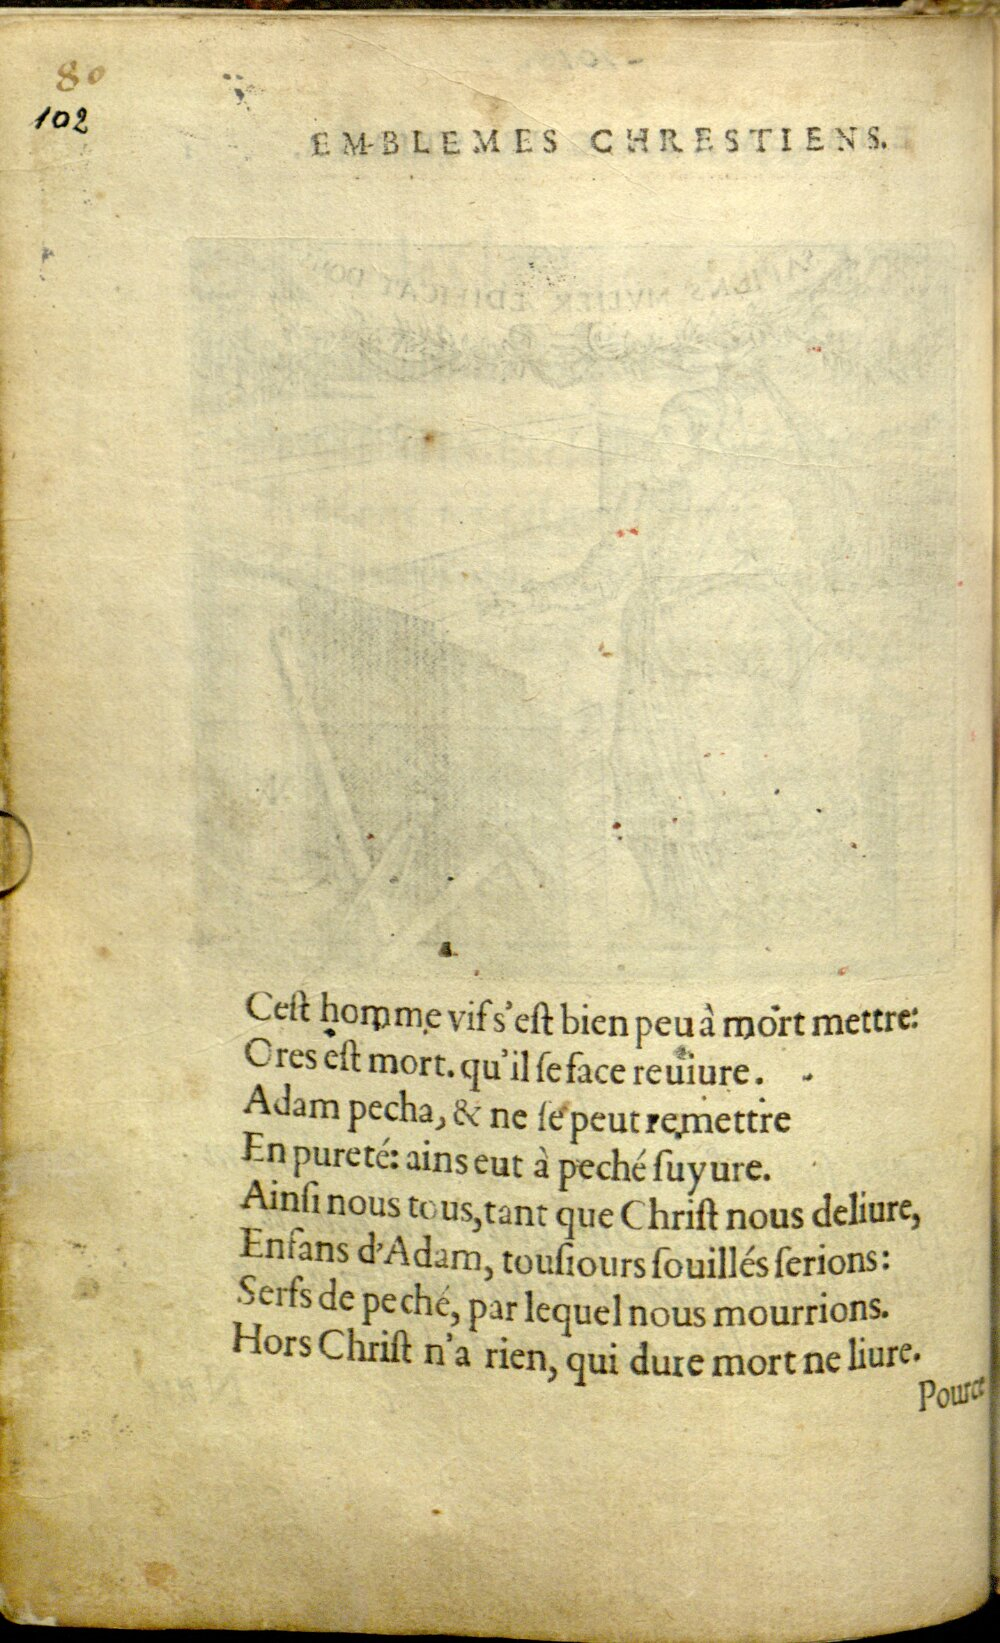 80
102
EMBLEMES CHRESTIENS.
Cest homme vif s'eſt bien peu à mort mettre:
Ores eſt mort. qu'il ſe face reuiure.
Adam pecha, & ne ſe peut remettre
En pureté: ains eut à peché ſuyure.
Ainſi nous tous, tant que Chriſt nous deliure,
Enfans d'Adam, touſiours ſouillés ſerions:
Serfs de peché, par lequel nous mourrions.
Hors Chriſt n'a rien, qui dure mort ne liure.
Pource